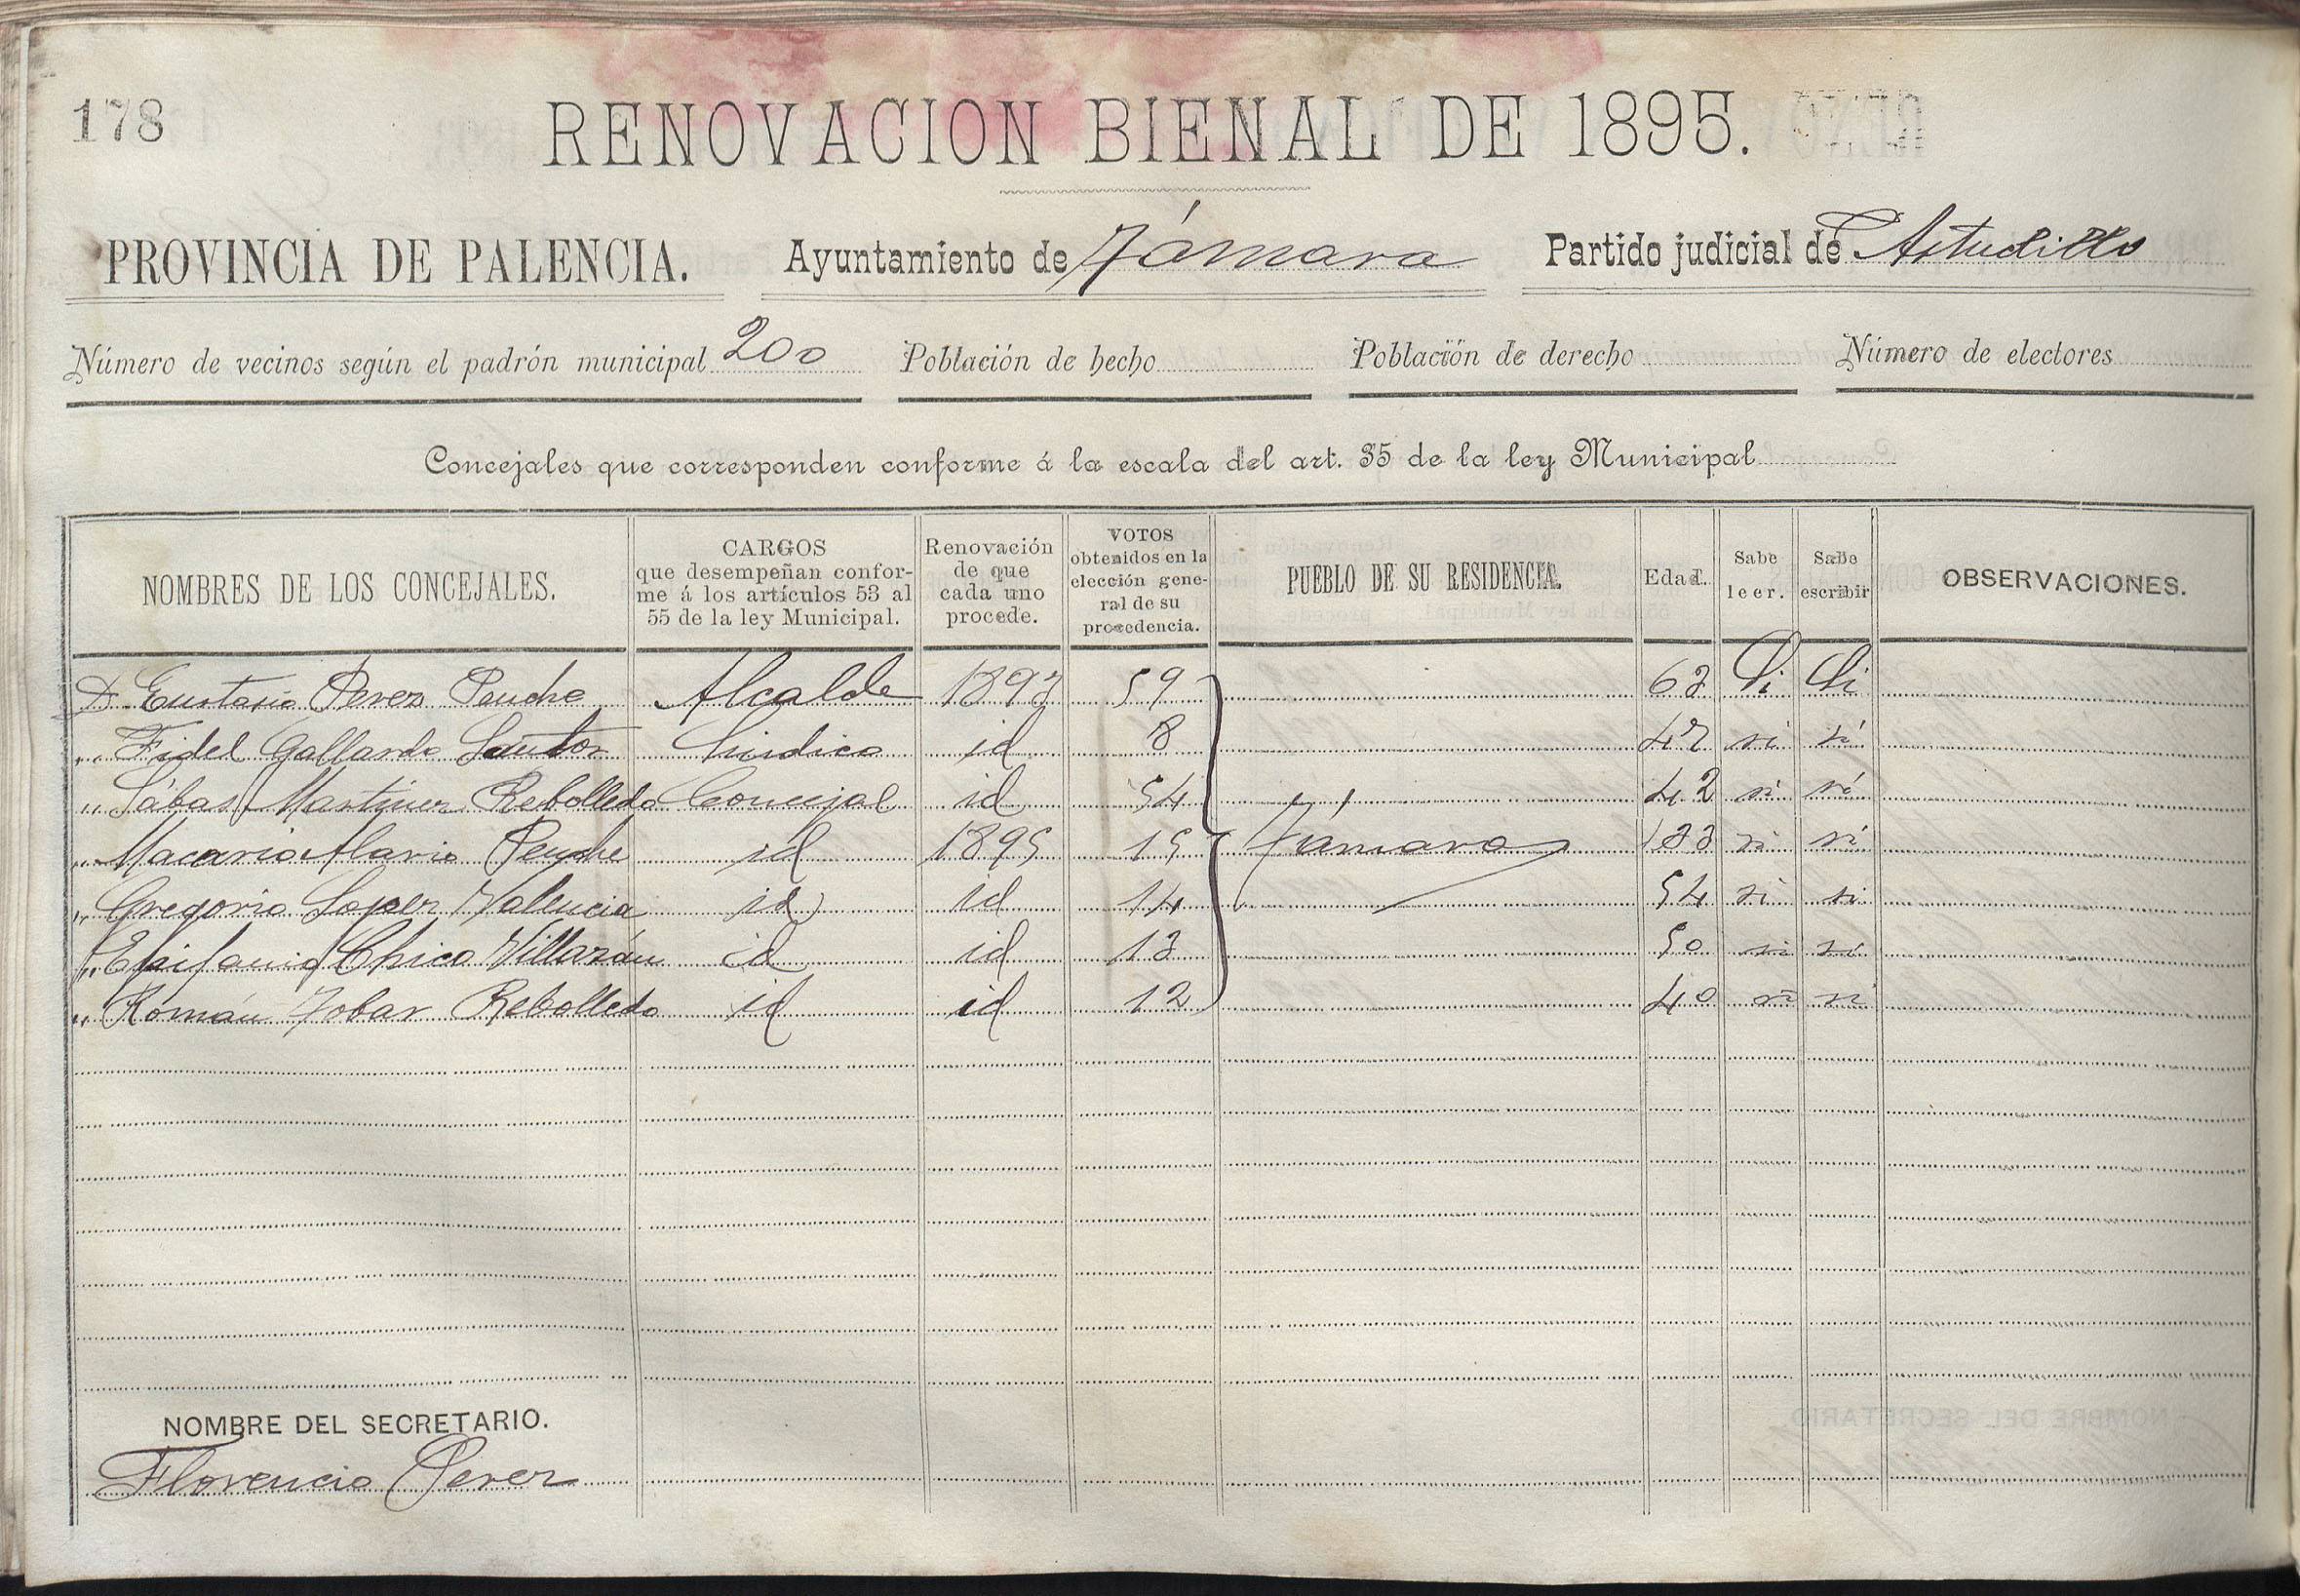 178
RENOVACION BIENAL DE 1895.
PROVINCIA DE PALENCIA. Ayuntamiento de Támara Partido judicial de Astudillo
Número de vecinos según el padrón municipal 200 Población de hecho Población de derecho Número de electores
Concejales que corresponden conforme á la escala del art. 35 de la ley Municipal
NOMBRES DE LOS CONCEJALES.
CARGOS
que desempeñan confor-
me á los artículos 53 al
55 de la ley Municipal.
Renovación
de que
cada uno
procede.
VOTOS
obtenidos en la
elección gene-
ral de su
procedencia.
PUEBLO DE SU RESIDENCIA.
Edad.
Sabe
leer.
Sabe
escribir
OBSERVACIONES.
D. Eustasio Perez Peuche Alcalde 1893 59 63 Si Si
„ Fidel Gallardo Santos Sindico id 8 47 si si
„ Sábas Martinez Rebolledo Concejal id 54 42 si si
„ Macario Alario Peuche id 1895 15 Támara 33 si si
„ Gregorio Lopez Valencia id id 14 54 si si
„ Epifanio Chico Villazán id id 13 50 si si
„ Román Tobar Rebolledo id id 12 40 si si
NOMBRE DEL SECRETARIO.
Florencio Perez